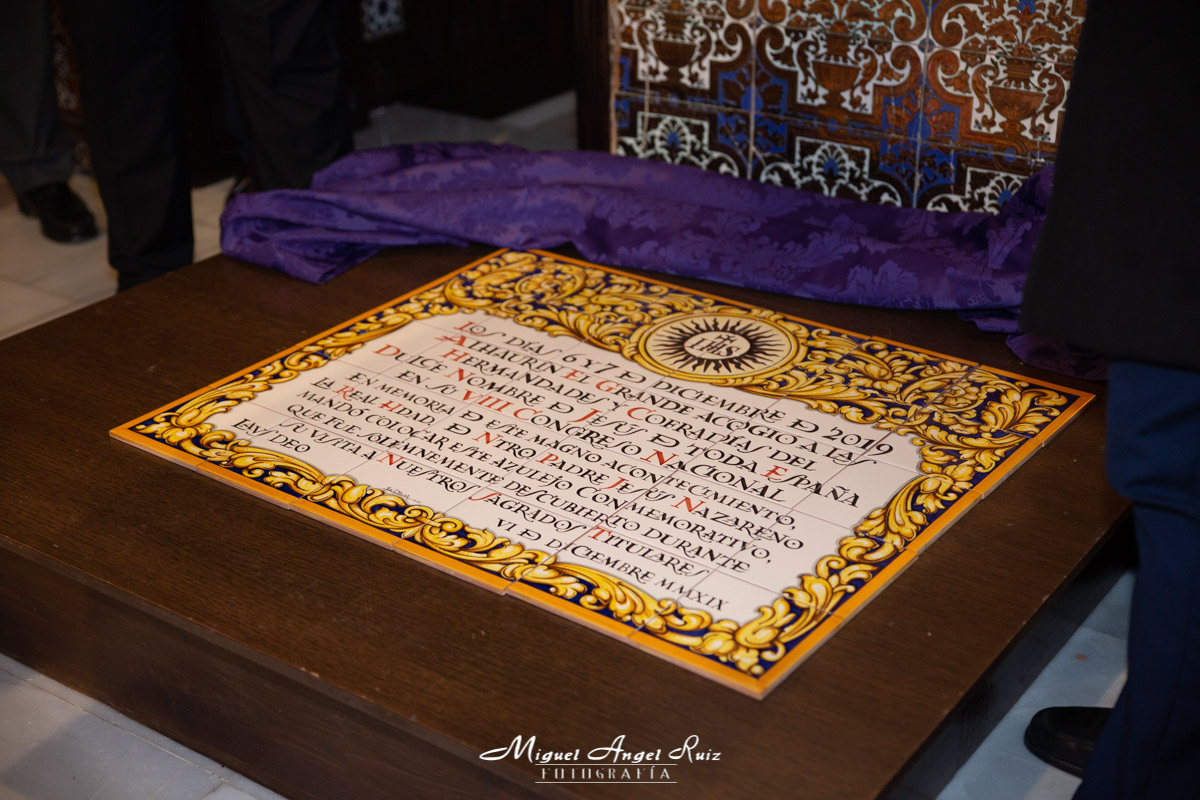 IHS
LOS DÍAS 6 Y 7 DE DICIEMBRE DE 2019
ALHAURÍN EL GRANDE ACOGIO A LAS
HERMANDADES Y COFRADÍAS DEL
DULCE NOMBRE DE JESÚS DE TODA ESPAÑA
EN SU VIII CONGRESO NACIONAL
EN MEMORIA DE ESTE MAGNO ACONTECIMIENTO,
LA REAL HDAD. DE NTRO PADRE JESÚS NAZARENO
MANDÓ COLOCAR ESTE AZULEJO CONMEMORATIVO,
QUE FUE SOLEMNEMENTE DESCUBIERTO DURANTE
SU VISITA A NUESTROS SAGRADOS TITULARES
LAUS DEO
VI DE DICIEMBRE MMXIX
Miguel Angel Ruiz
FOTOGRAFÍA